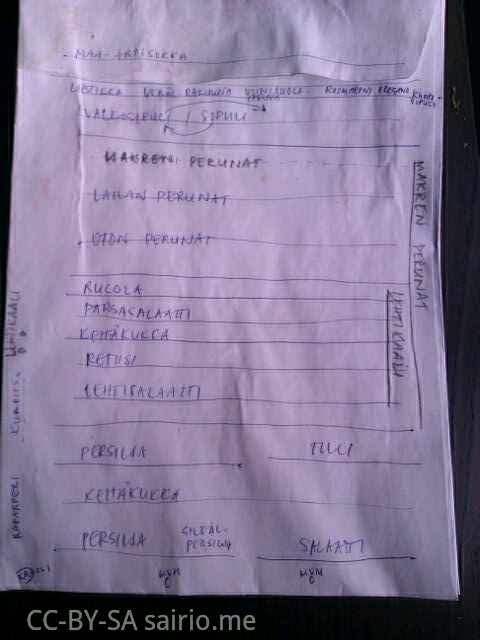 - MAA-ARTISOKKA
VALKOSIPULI / SIPULI
MAKRENI PERUNAT
LAHAN PERUNAT
OTON PERUNAT
RUCOLA
PARSASALAATTI
KEHÄKUKKA
RETIISI
LEHTISALAATTI
PERSILJA TILLI
KEHÄKUKKA
PERSILJA SILEÄL. PERSILJA SALAATTI
MAKREN PERUNAT
LEHTIKAALI
RAPARPERI KURPITS. LEHTIKAALI
CC-BY-SA sairio.me